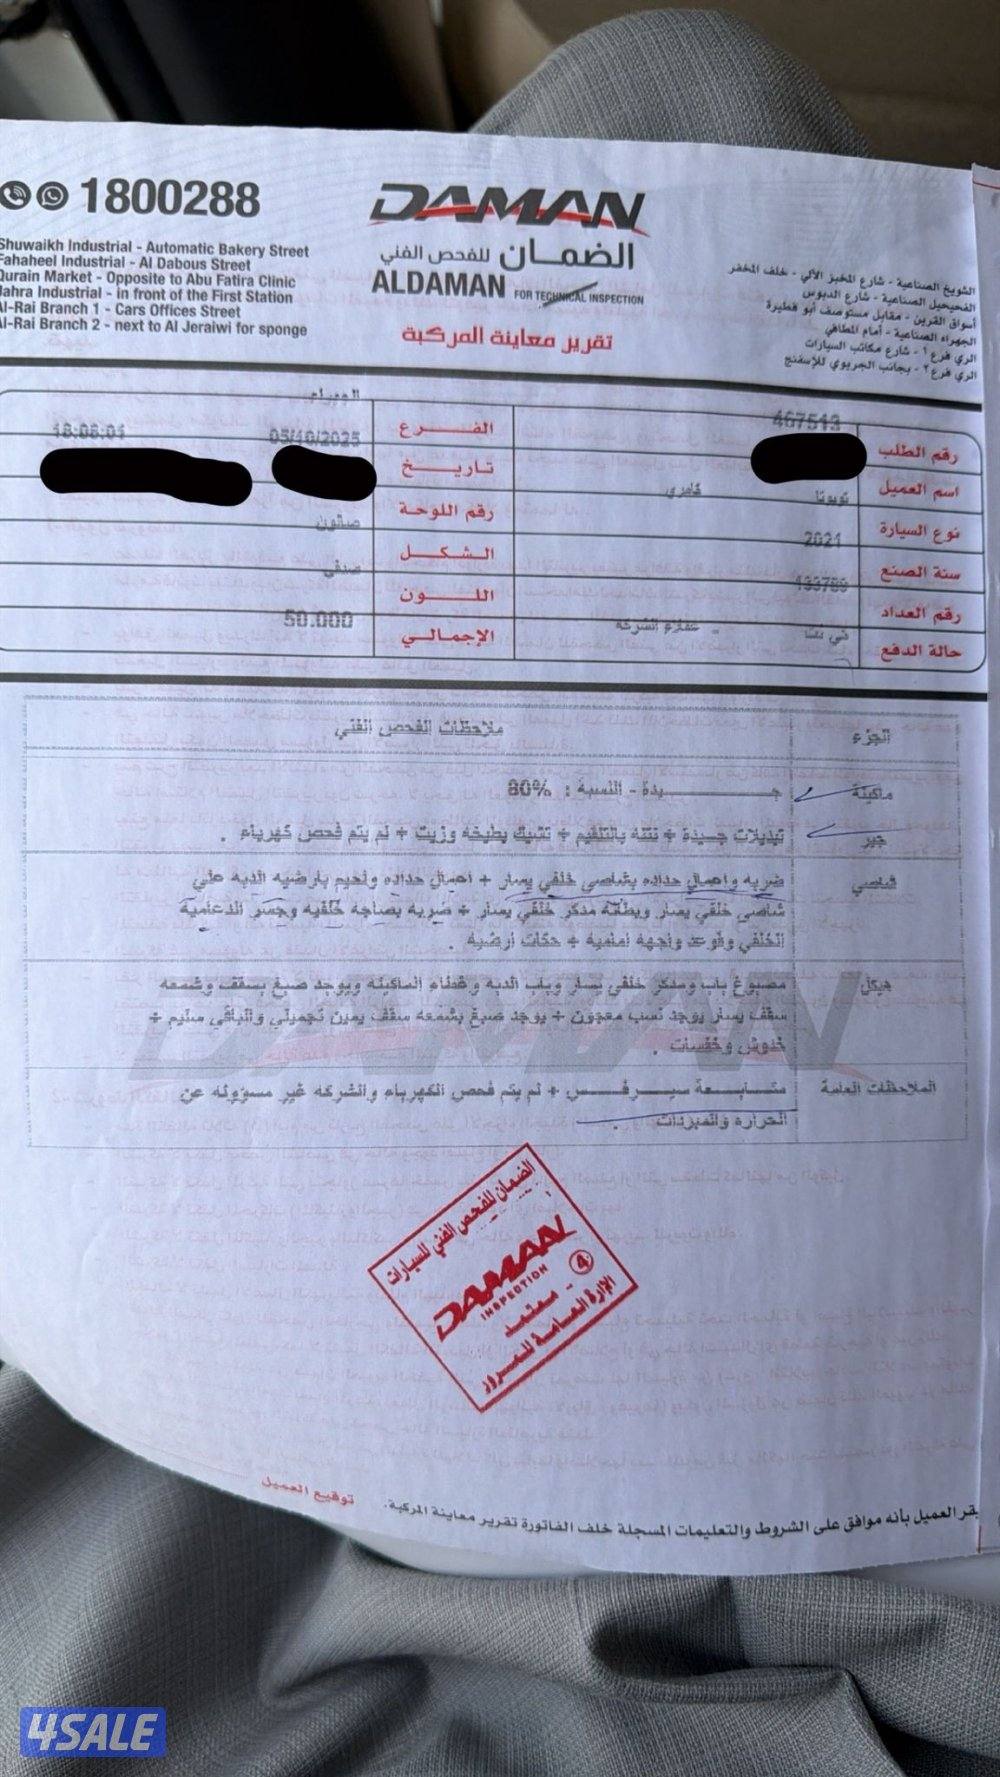 1800288
Shuwaikh Industrial - Automatic Bakery Street
Fahaheel Industrial - Al Dabous Street
Qurain Market - Opposite to Abu Fatira Clinic
Jahra Industrial - in front of the First Station
Al-Rai Branch 1 - Cars Offices Street
Al-Rai Branch 2 - next to Al Jeraiwi for sponge
DAMAN
الضمان للفحص الفني
ALDAMAN FOR TECHNICAL INSPECTION
تقرير معاينة المركبة
الشويخ الصناعية - شارع المخبز الآلي - خلف المخفر
الفحيحيل الصناعية - شارع الدبوس
أسواق القرين - مقابل مستوصف أبو فطيرة
الجهراء الصناعية - أمام المطافي
الري فرع ١ - شارع مكاتب السيارات
الري فرع ٢ - بجانب الجريوي للإسفنج
رقم الطلب 467513
الفرع الجهراء
اسم العميل
تاريخ 05/10/2025 18:08:01
نوع السيارة تويوتا كامري
رقم اللوحة
سنة الصنع 2021
الشكل صالون
رقم العداد 133789
اللون صدفي
حالة الدفع كي نت - عملاء الشركة
الإجمالي 50.000
الجزء ملاحظات الفحص الفني
ماكينة جيدة - النسبة : 80%
جير تبديلات جيدة + نتله بالتلقيم + تشييك بطيخه وزيت + لم يتم فحص كهرباء .
شاصي ضربه واعمال حداده بشاصي خلفي يسار + اعمال حداده ولحيم بارضيه الدبه علي
شاصي خلفي يسار وبطانه مدكر خلفي يسار + ضربه بصاجه خلفيه وجسر الدعاميه
الخلفي وقوعد واجهه اماميه + حكات أرضيه .
هيكل مصبوغ باب ومدكر خلفي يسار وباب الدبه وغطاء الماكينه ويوجد صبغ بسقف وشمعه
سقف يسار يوجد نسب معجون + يوجد صبغ بشمعه سقف يمين تجميلي والباقي سليم +
خدوش وخفسات .
الملاحظات العامة متابعة سيرفس + لم يتم فحص الكهرباء والشركه غير مسؤوله عن
الحراره والمبردات .
DAMAN
الضمان للفحص الفني للسيارات
DAMAN
INSPECTION
4
معتمد
الإدارة العامة للمرور
يقر العميل بأنه موافق على الشروط والتعليمات المسجلة خلف الفاتورة تقرير معاينة المركبة.
توقيع العميل
4SALE